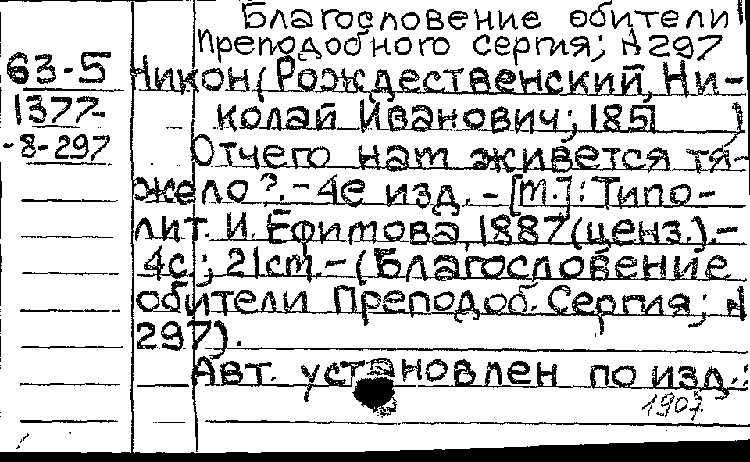 Благословение обители
Преподобного Сергия; N 297
63-5
1377-
-8-297
Никон (Рождественский, Ни-
колай Иванович; 1851 )
Отчего нам живется тя-
жело?. - 4е изд. - [М.]: Типо-
лит. И. Ефимова, 1887 (ценз.). -
4с.; 21см. - (Благословение
обители Преподоб. Сергия; N
297).
Авт. установлен по изд.:
1907.